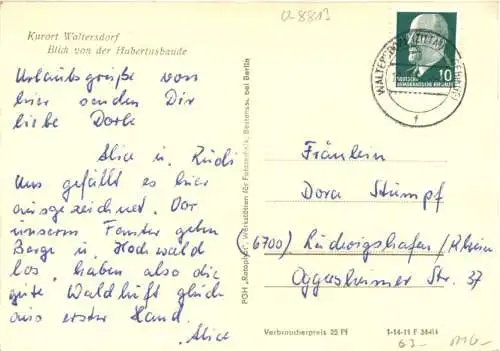 a 8813
Kurort Waltersdorf
Blick von der Hubertusbaude
Urlaubsgrüße von
hier senden Dir
liebe Dorle
Alice u. Rudi
Uns gefällt es hier
ausgezeichnet. Vor
unserem Fenster gehen
Berge u. Hochwald
los, haben also die
gute Waldluft gleich
aus erster Hand.
Alice
PGH „Rotophot“, Werkstätten für Fototechnik, Bestensee bei Berlin
DEUTSCHE
DEMOKRATISCHE REPUBLIK
10
WALTERSDORF
Fräulein
Dora Stumpf
(6700) Ludwigshafen/Rhein
Oggersheimer Str. 37
Verbraucherpreis 20 Pf
1-14-11 F 36414